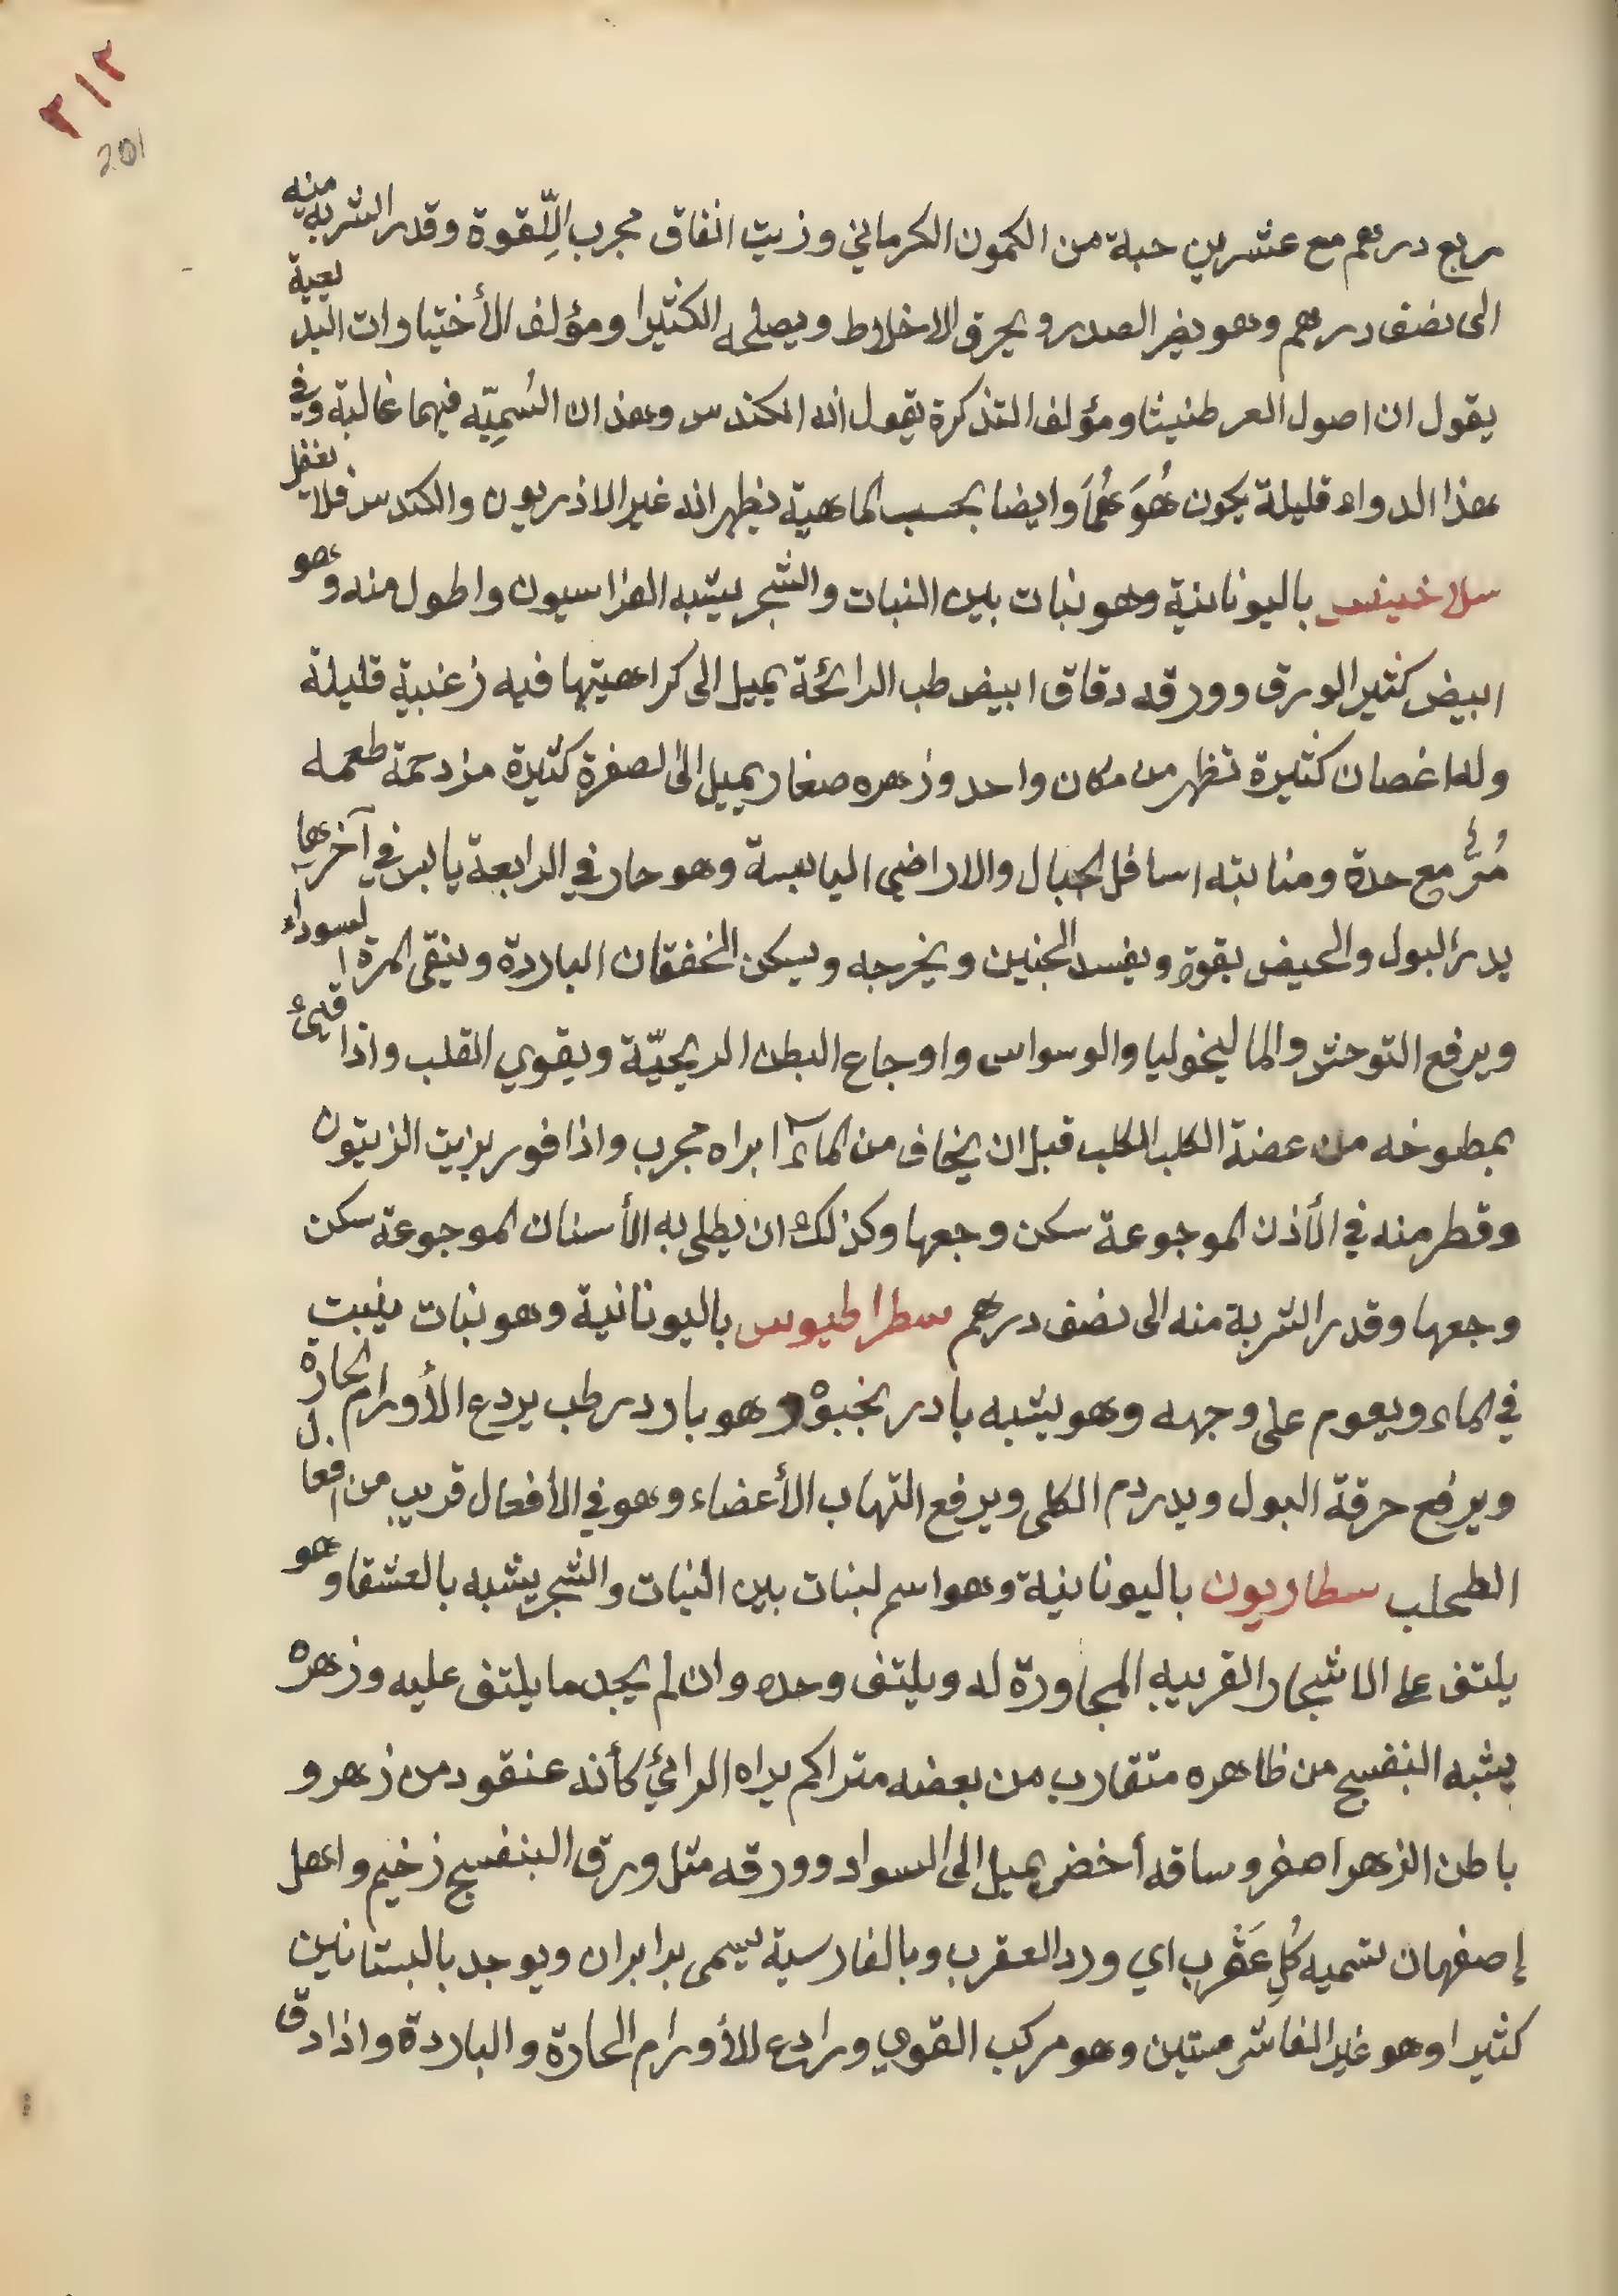 ٢١٢
201
ربع درهم مع عشرين حبة من الكمون الكرماني وزيت انفاق مجرب اللِّقوة وقدر الشربة منه
الى نصف درهم وهو يضر الصدر ويحرق الاخلاط ويصلحه الكثيرا ومؤلف الأختياوات البديعية
يقول ان اصول العرطنيثا ومؤلف التذكرة يقول أنه الكندس وهذان السُمِيّه فيهما غالبة وفي
هذا الدواء قليلة يكون هُوَ هُمَا وايضا بحسب الماهية يظهر انه غير الاذريون والكندس فلا تغفل
سلاخينس باليونانية وهو نبات بين النبات والشجر يشبه الفراسيون واطول منه وهو
ابيض كثير الورق وورقه دقاق ابيض طب الرائحة يميل الى كراهيتها فيه زغبية قليلة
وله اغصان كثيرة تظهر من مكان واحد وزهره صغار يميل الى لصفرة كثيرة مزدحمة طعمه
مُرّ مع حدة ومنابته اسافل الجبال والاراضي اليابسة وهو حار في الرابعة يابس في آخرها
يدر البول والحيض بقوة ويفسد الجنين ويخرجه ويسكن الخفقان الباردة وينقى المرة السوداء
ويرفع التوحش والماليخوليا والوسواس واوجاع البطن الريحيّة ويقوي القلب واذا قيئ
بمطبوخه من عضة الكلب الكلب قبل ان يخاف من الماء ابراه مجرب واذا فور بزيت الزيتون
وقطر منه في الأذن الموجوعة سكن وجعها وكذلك ان يطلى به الأسنان الموجوعة سكن
وجعها وقدر الشربة منه الى نصف درهم سطراطيوس باليونانية وهو نبات ينبت
في الماء ويعوم على وجهه وهو يشبه بادرنجبوة وهو بارد رطب يردع الأورام الحارة
ويرفع حرقة البول ويدر دم الكلى ويرفع التهاب الأعضاء وهو في الأفعال قريب من افعال
الطحلب سطاريون باليونانية وهو اسم لنبات بين النبات والشجر يشبه بالعشقا وهو
يلتف على الاشجار القريبه المجاورة له ويلتف وحده وان لم يجد ما يلتف عليه وزهره
يشبه النفسج من ظاهره متقارب من بعضه متراكم يراه الرائي كأنه عنقود من زهر و
باطن الزهر اصفر وساقه أخضر يميل الى السواد وورقه مثل ورق البنفسج زخيم واهل
إصفهان تسميه كُلِ عَقْرب اي ورد العقرب وبالفارسية يسمى برابران ويوجد بالبستانين
كثيرا وهو غير الفاشرستين وهو مركب القوي ورادع للأورام الحارة والباردة واذا دق